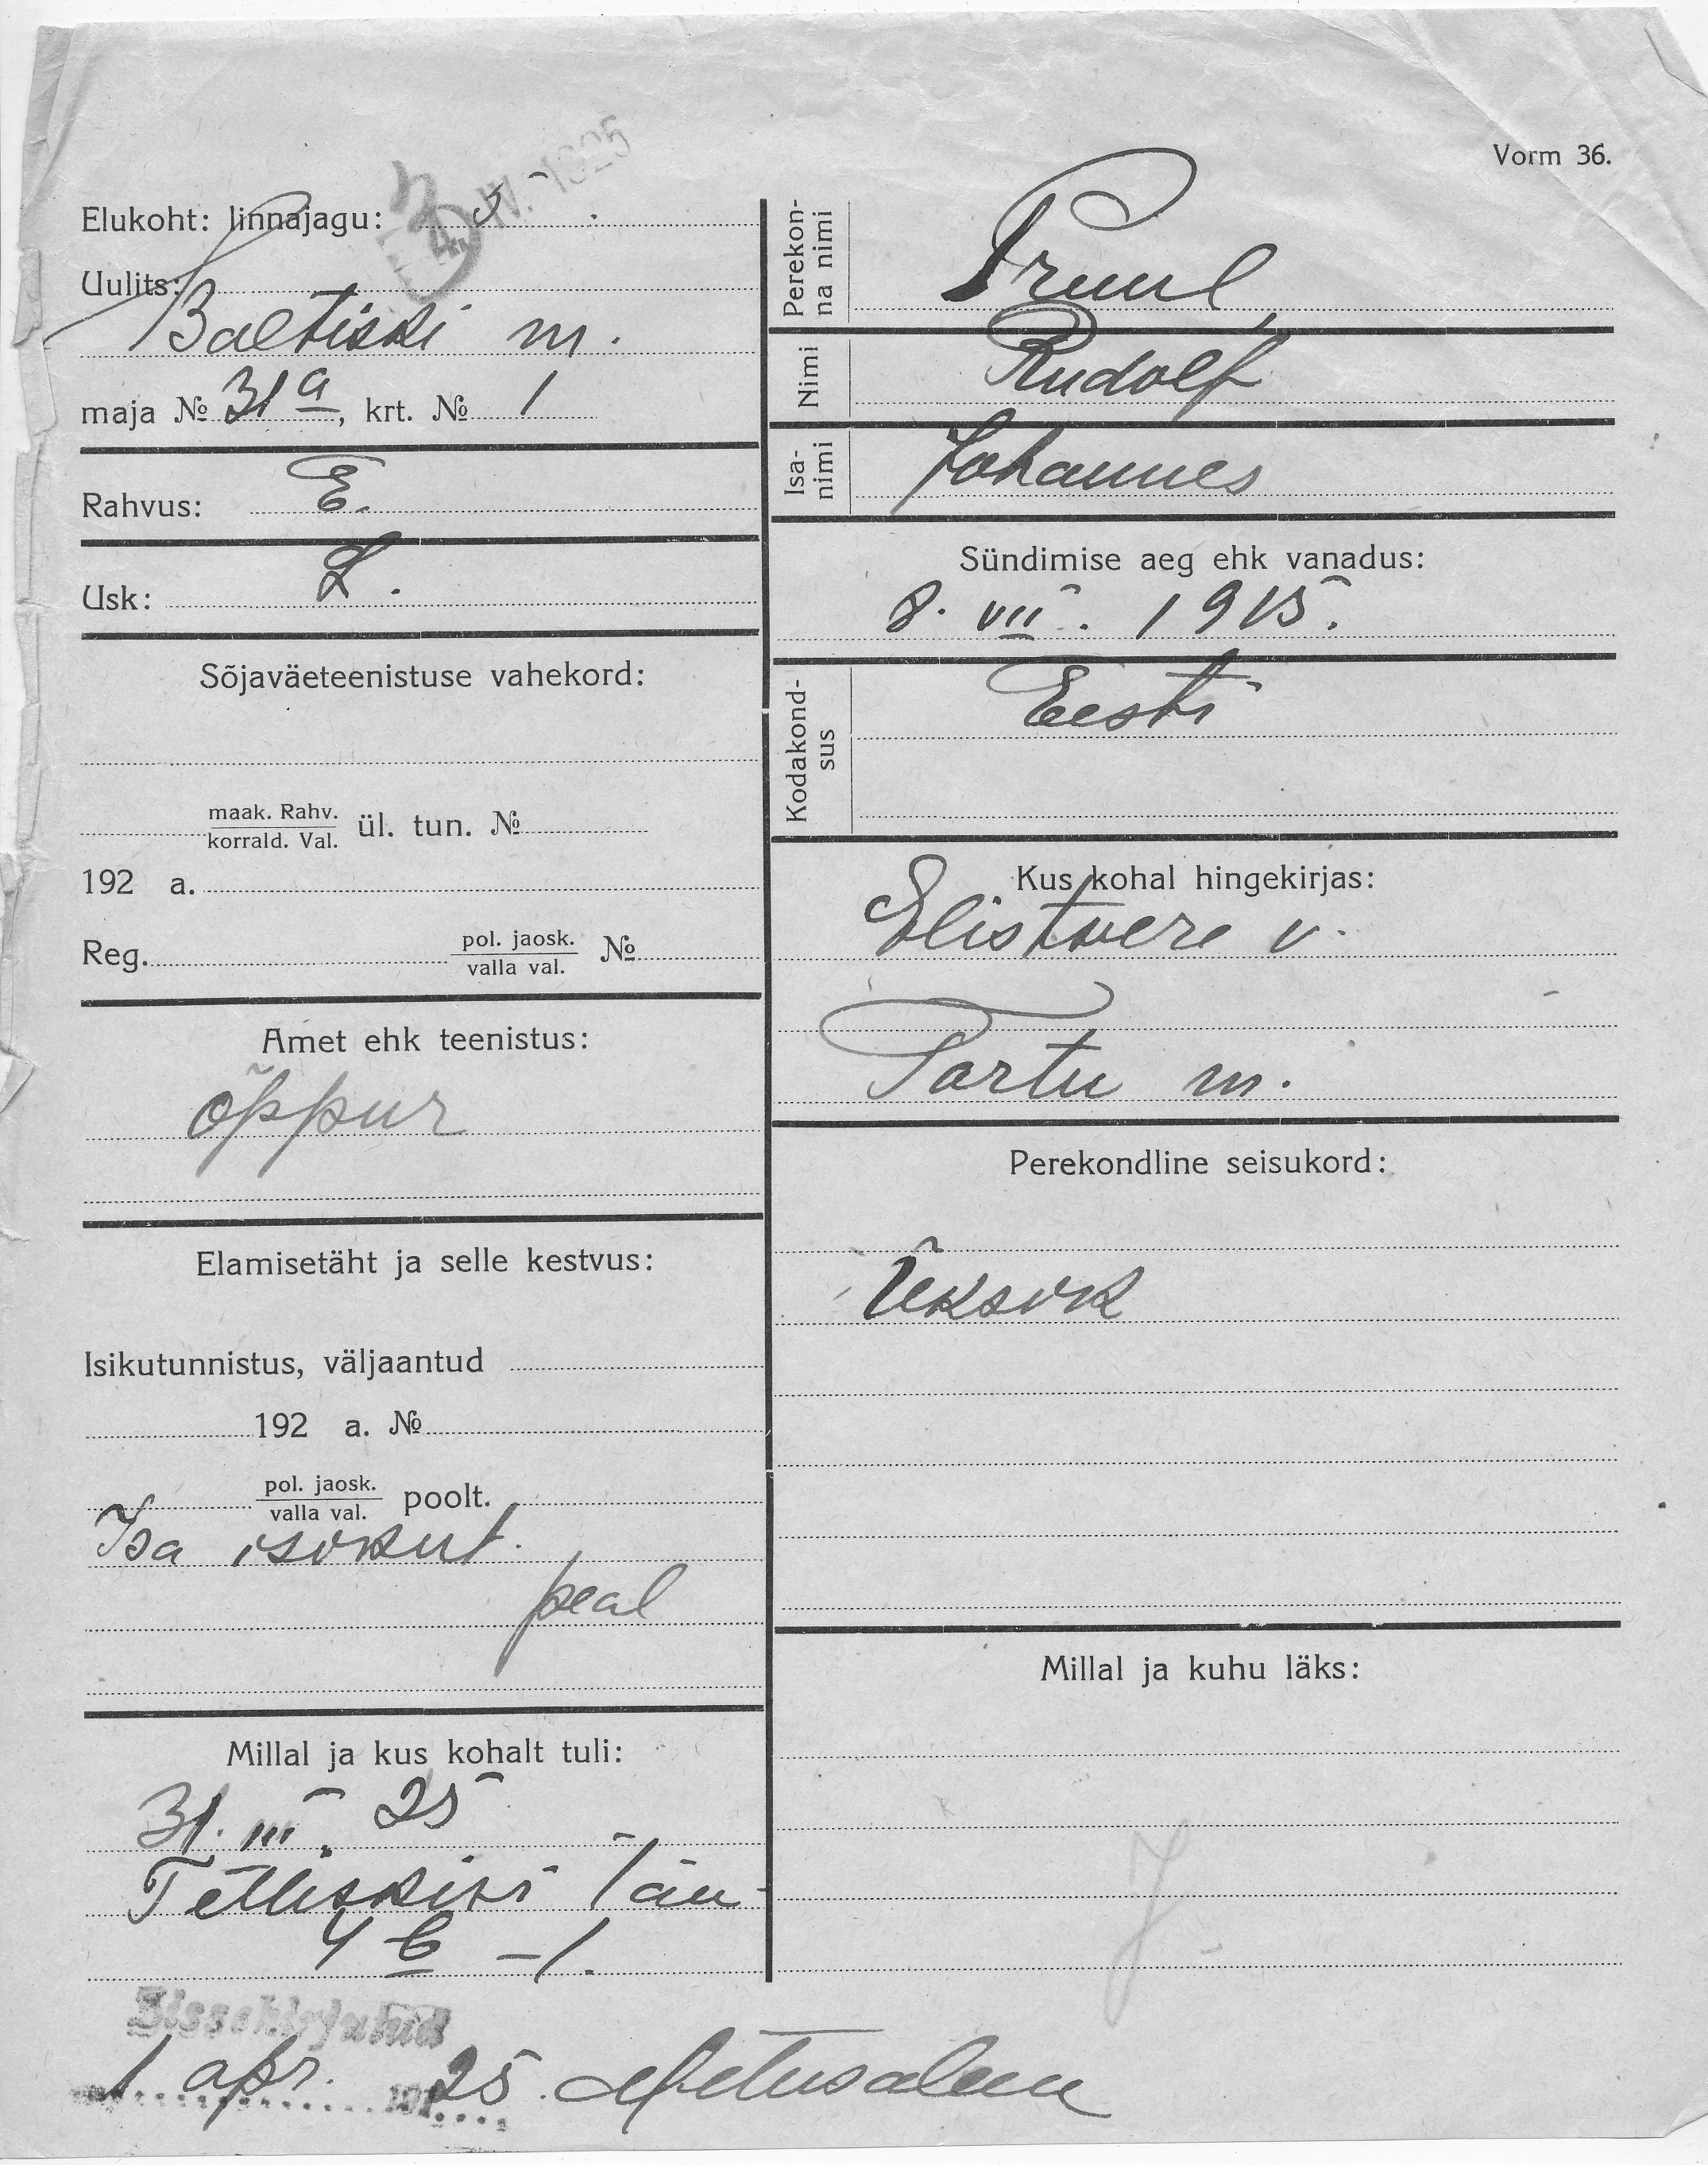 Vorm 36.
Elukoht: linnajagu: 5
Uulits:
Baltiski m.
maja № 31 a, krt. № 1
Rahvus: E.
Usk: L.
Sõjaväeteenistuse vahekord:
maak. Rahv.
korrald. Val. ül. tun. №
192 a.
Reg. pol. jaosk.
valla val. №
Amet ehk teenistus:
õppur
Elamisetäht ja selle kestvus:
Isikutunnistus, väljaantud
192 a. №
pol. jaosk.
valla val. poolt.
Isa isikut.
peal
Millal ja kus kohalt tuli:
31. III. 25
Telliskivi tän
4 b - 1.
Sissekirjutud
1 apr. 192 25
Perekon-
na nimi
Pruul
Nimi Rudolf
Isa-
nimi
Johannes
Sündimise aeg ehk vanadus:
8. VII. 1915.
Kodakond-
sus
Eesti
Kus kohal hingekirjas:
Elistvere v.
Tartu m.
Perekondline seisukord:
Üksik
Millal ja kuhu läks: